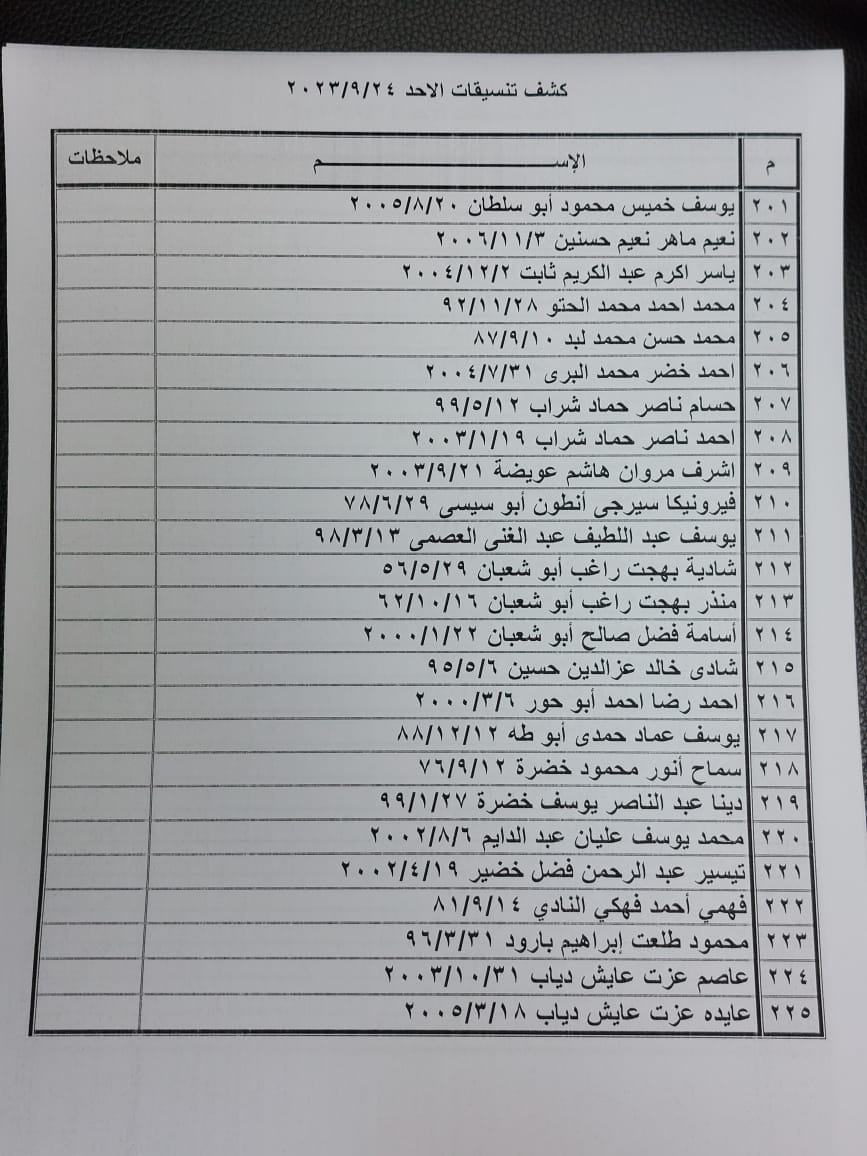 كشف تنسيقات الاحد ٢٠٢٣/٩/٢٤
م الإســـم ملاحظات
٢٠١ يوسف خميس محمود أبو سلطان ٢٠٠٥/٨/٢٠
٢٠٢ نعيم ماهر نعيم حسنين ٢٠٠٦/١١/٣
٢٠٣ ياسر اكرم عبد الكريم ثابت ٢٠٠٤/١٢/٢
٢٠٤ محمد احمد محمد الحتو ٩٢/١١/٢٨
٢٠٥ محمد حسن محمد لبد ٨٧/٩/١٠
٢٠٦ احمد خضر محمد البرى ٢٠٠٤/٧/٣١
٢٠٧ حسام ناصر حماد شراب ٩٩/٥/١٢
٢٠٨ احمد ناصر حماد شراب ٢٠٠٣/١/١٩
٢٠٩ اشرف مروان هاشم عويضة ٢٠٠٣/٩/٢١
٢١٠ فيرونيكا سيرجى أنطون أبو سيسى ٧٨/٦/٢٩
٢١١ يوسف عبد اللطيف عبد الغنى العصمى ٩٨/٣/١٣
٢١٢ شادية بهجت راغب أبو شعبان ٥٦/٥/٢٩
٢١٣ منذر بهجت راغب أبو شعبان ٦٢/١٠/١٦
٢١٤ أسامة فضل صالح أبو شعبان ٢٠٠٠/١/٢٢
٢١٥ شادى خالد عزالدين حسين ٩٥/٥/٦
٢١٦ احمد رضا احمد أبو حور ٢٠٠٠/٣/٦
٢١٧ يوسف عماد حمدى أبو طه ٨٨/١٢/١٢
٢١٨ سماح أنور محمود خضرة ٧٦/٩/١٢
٢١٩ دينا عبد الناصر يوسف خضرة ٩٩/١/٢٧
٢٢٠ محمد يوسف عليان عبد الدايم ٢٠٠٢/٨/٦
٢٢١ تيسير عبد الرحمن فضل خضير ٢٠٠٢/٤/١٩
٢٢٢ فهمي أحمد فهكي النادي ٨١/٩/١٤
٢٢٣ محمود طلعت إبراهيم بارود ٩٦/٣/٣١
٢٢٤ عاصم عزت عايش دياب ٢٠٠٣/١٠/٣١
٢٢٥ عايده عزت عايش دياب ٢٠٠٥/٣/١٨